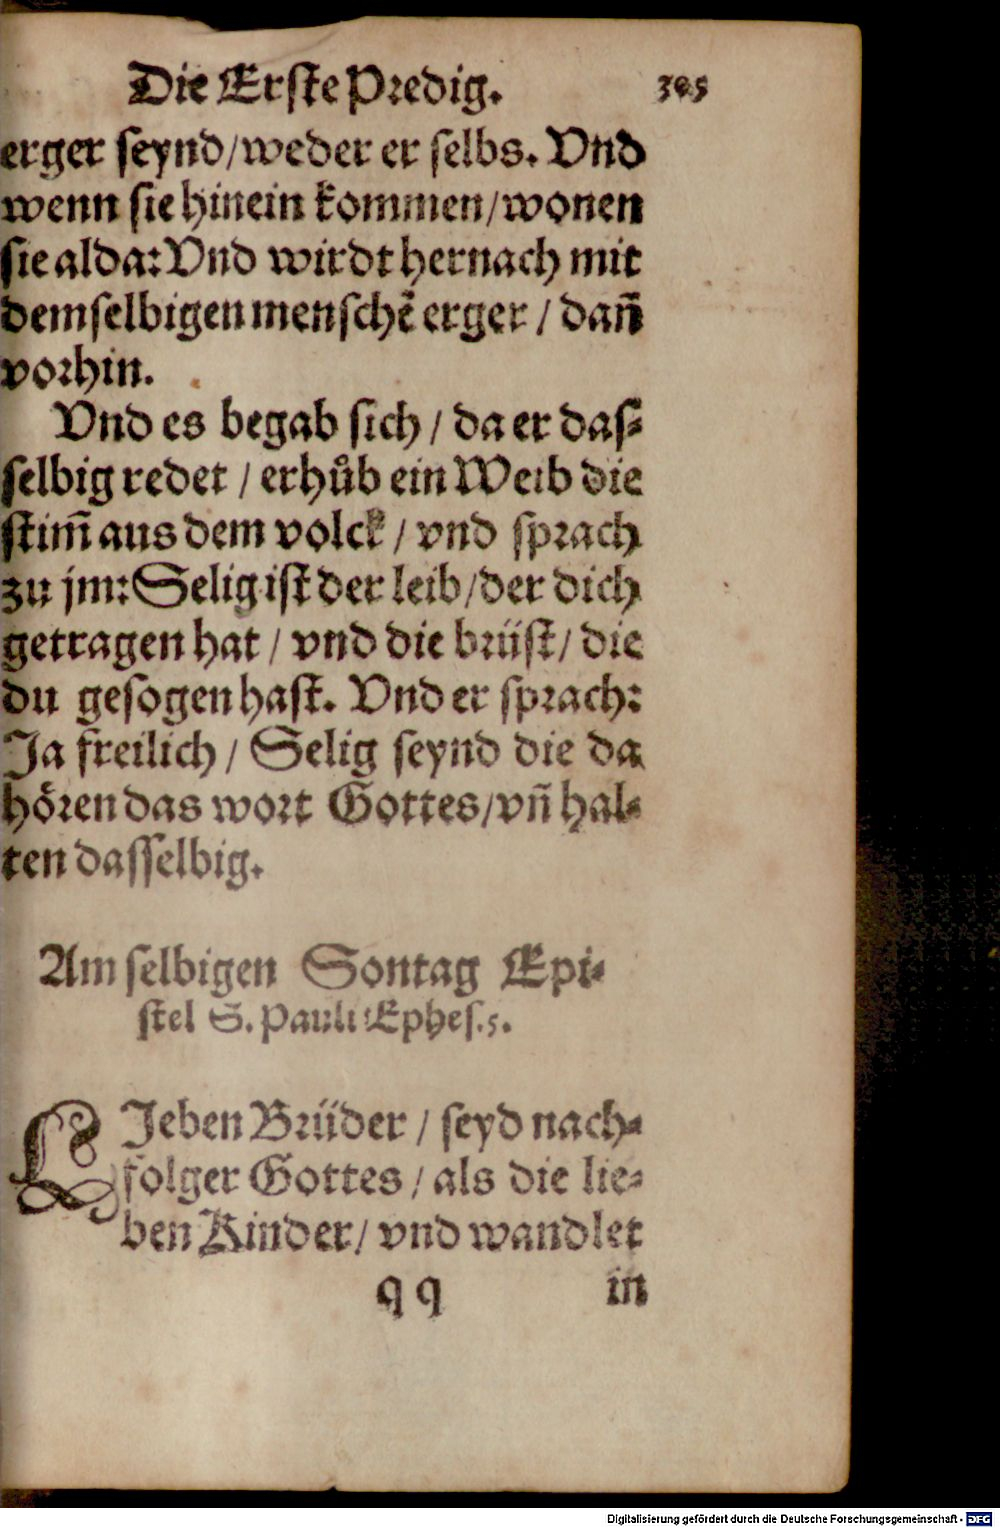 Die Erste Predig. 305
erger seynd/weder er selbs. Vnd
wenn sie hinein kommen/wonen
sie alda: Vnd wirdt hernach mit
demselbigen menschẽ erger / dañ
vorhin.
Vnd es begab sich / da er das-
selbig redet / erhůb ein Weib die
stim̃ aus dem volck / vnd sprach
zu jm: Selig ist der leib/der dich
getragen hat / vnd die brüst/ die
du gesogen hast. Vnd er sprach:
Ja freilich / Selig seynd die da
hören das wort Gottes/vñ hal-
ten dasselbig.
Am selbigen Sontag Epi-
stel S. Pauli Ephes.5.
LJeben Brüder / seyd nach-
folger Gottes / als die lie-
ben Kinder/ vnd wandlet
q q in
Digitalisierung gefördert durch die Deutsche Forschungsgemeinschaft - DFG